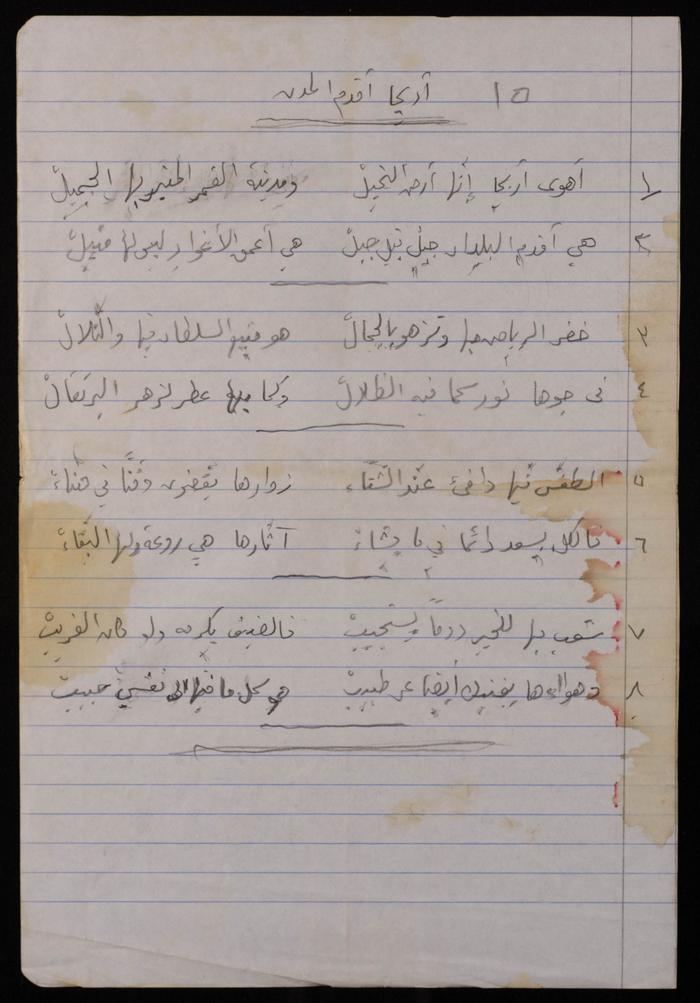 ١٥ أريحا أقدم المدن
١ أهوى أريحا إنها أرض النخيلْ ومدينة القمر المنير بها الجميلْ
٢ هي أقدم البلدان جيل قبل جيلْ هي أعمق الأغوار ليس لها مثيلْ
٣ خضر الرياض بها وتزهو بالجمالْ هو فيها والتلالْ
٤ في جوها نور سما فيه الظلالْ عطر لزهر البرتقالْ
٥ الطقس فيها دافئ عند الشتاء زوارها يقضون وقتًا في هناءْ
٦ فالكل يسعد دائما في ما يشاءْ آثارها هي روعة ولها البقاءْ
٧ شعب بها للخير دومًا يستجيبْ فالضيف يكرمه ولو كان الغريبْ
٨ وهواءها يغنيك أيضا عن طبيبْ هي كل ما فيها الى نفسي حبيبْ